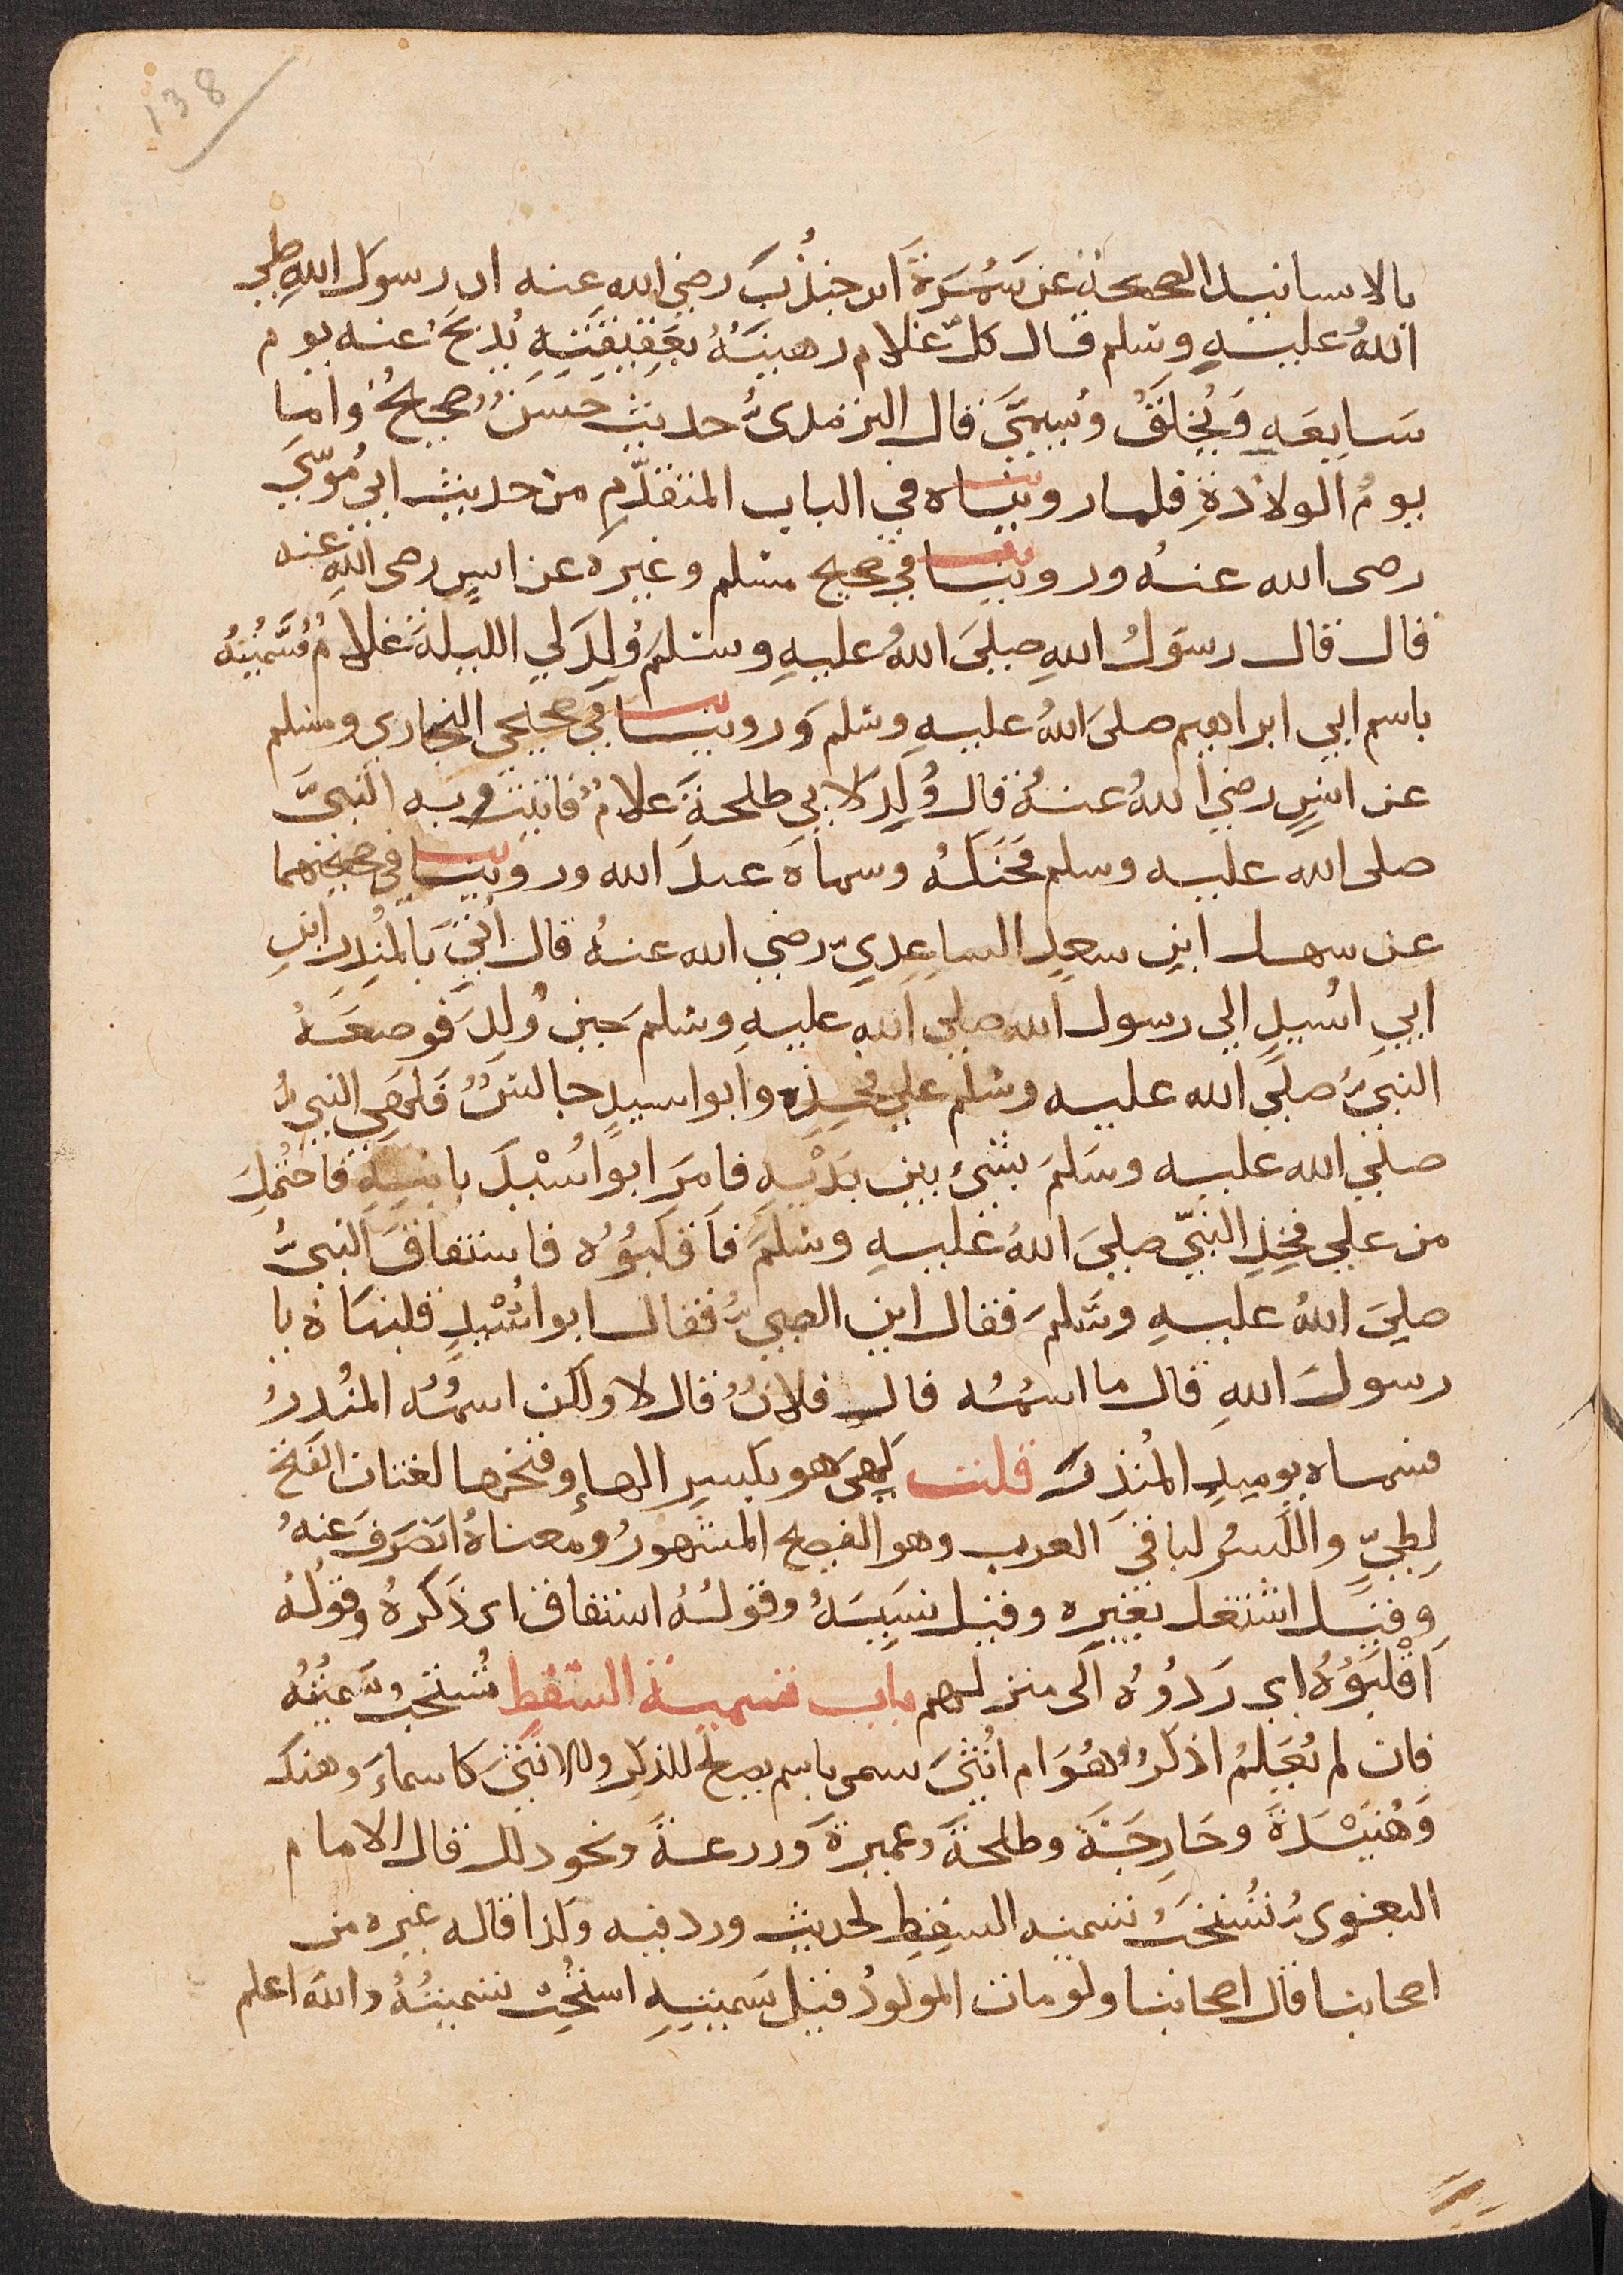 138
بالاسانيد الصحيحة عن سَمُرَةَ ابن جندُبَ رضي الله عنه ان رسول الله صلي
اللهُ عليه وسلم قال كلّ غلام رهينَةُ بعَقِيقَتِهِ يُذبَحُ عنه يوم
سَابِعَهِ وَيُحلَقُ ويُسمَّيَ قال الترمذىُّ حديث حَسَنٌ صحيحٌ واما
يومُ الولادةِ فلما رويناه في الباب المتقدّمِ من حديث ابي مُوسَي
رضى الله عنهُ وروينا في صحيح مسلم وغيره عن انسٍ رضى الله عنه
قال قال رسَولُ اللهِ صلَي اللهُ عليهِ وسلمَ وُلِدَ لي الليلةَ غلامٌ فسَمَّيْتُهُ
باسم ابي ابراهيم صلىَ اللهُ عليهِ وسلم وَروينا في صحيحى البخاري ومسلم
عن انسٍ رضي اللهُ عنهُ قال وُلِدَ لابي طلحةَ غلامٌ فاتيتُ به النبيَّ
صلى الله عليه وسلم فحَنَّكهُ وسماهَ عبدَ الله وروينا في صحيحيهما
عن سهل ابنِ سعدٍ الساعِدِيّ رضي الله عنهُ قال اُتيَ بالمُنذِر ابنِ
ابيِ اُسَيدٍ الي رسول الله صلي الله عليهِ وسلم حينَ وُلِدَ فوضعَهُ
النبيُّ صلَي الله عليه وسلم علي فخِذِه وابو اسيدٍ جالسٌ فَلهِيَ النبيُّ
صلي الله عليه وسَلمَ بشيْ بين يدَيْهِ فامرَ ابوا اُسْيدَ بابنهِ فاحتُملَ
من علي فخِذِ النبيّ صليَ اللهُ عليهِ وسلمَ فاَقلبُوُه فاستفاقَ النبيُّ
صليَ اللهُ عليهِ وسَلمَ فقال اين الصبيُّ فقال ابوا اُسْيدٍ قلبنَاهُ يا
رسولَ اللهِ قال ما اسمُه قال فلانٌ قال لا ولكن اسمُه المنُذرُ
فسماه يوميذٍ المُنذرَ قلت لَهىَ هو بكسرِ الهاءِ وفتحها لغتان الفَتحُ
لِطيّ والكسرُ لباقىَ العرب وهو الفصيح المشهورُ ومعناهُ انصَرفَ عنهُ
وقيل اشتغل بغيرِه وقيل نسَيَهُ وقولُهُ استفاق اى ذكرهُ وقولُهُ
اَقْلبَوُهُ اي رَدوُهُ الى منزلهم باب تسمية السقطِ تُستحبُ تَسْمِيَتُهُ
فان لم يُعلمْ اذكرٌ هُوَ ام اُنثىَ سمى باسم يصلح للذكِر وللانثىَ كاسماءَ وهندَ
وَهُنَيْدَةَ وخَارِجَةَ وطلحةَ وعميرةَ وزرعةَ ونحو ذلك قال الامام
البغوىُّ تُستحَبُ تسميه السِقطِ لحديث ورد فيه وكذا قاله غيره من
اصحابنا قال اصحابنا ولو مات المولودُ قبل تسميتِهِ استُحِبَ تسميتُهُ والله اعلم